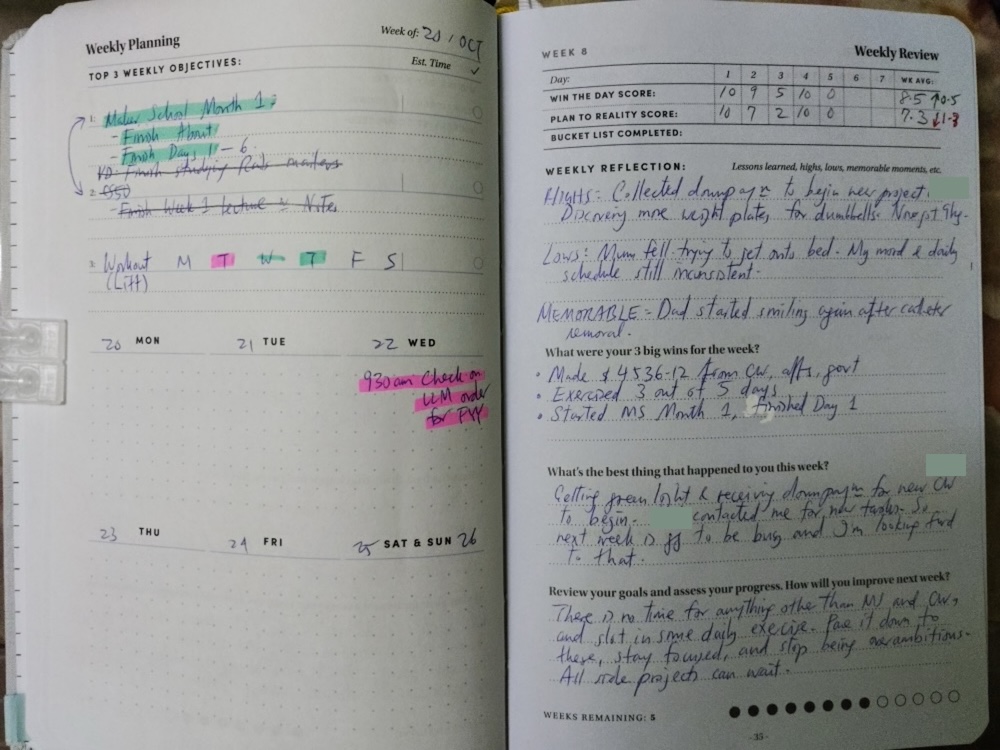 Weekly Planning
Week of: 20 / OCT
TOP 3 WEEKLY OBJECTIVES:
Est. Time ✓
1: Maker School Month 1:
- Finish About
- Finish Days 1 - 6
KD: Finish studying Rab mailers
2: OSO
- Finish Week 1 lecture Notes
3: Workout M T W T F S
(Lift)
20 MON
21 TUE
22 WED
930am Check on
LLM order
for
23 THU
24 FRI
25 SAT & SUN 26
WEEK 8
Weekly Review
Day: 1 2 3 4 5 6 7 WK AVG:
WIN THE DAY SCORE: 10 9 5 10 0 8.5 ↑0.5
PLAN TO REALITY SCORE: 10 7 2 10 0 7.3 ↓1.3
BUCKET LIST COMPLETED:
WEEKLY REFLECTION: Lessons learned, highs, lows, memorable moments, etc.
HIGHS: Collected downpaym to begin new project.
Discovery more weight plates for dumbbells. Now got 9kg.
LOWS: Mum fell trying to get onto bed. My mood & daily
schedule still inconsistent.
MEMORABLE: Dad started smiling again after catheter
removal.
What were your 3 big wins for the week?
• Made $4536.12 from CW, affs, govt
• Exercised 3 out of 5 days
• Started MS Month 1, finished Day 1
What's the best thing that happened to you this week?
Getting green light & receiving downpaym for new CW
to begin. contacted me for new tasks. So
next week is gg to be busy and I'm looking fwd
to that.
Review your goals and assess your progress. How will you improve next week?
There is no time for anything other than MS and CW,
and slot in some daily exercise. Pare it down to
these, stay focused, and stop being overambitious.
All side projects can wait.
WEEKS REMAINING: 5
- 35 -